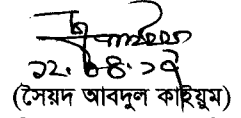 ১২.০৪.১৭
(সৈয়দ আবদুল কাইয়ুম)